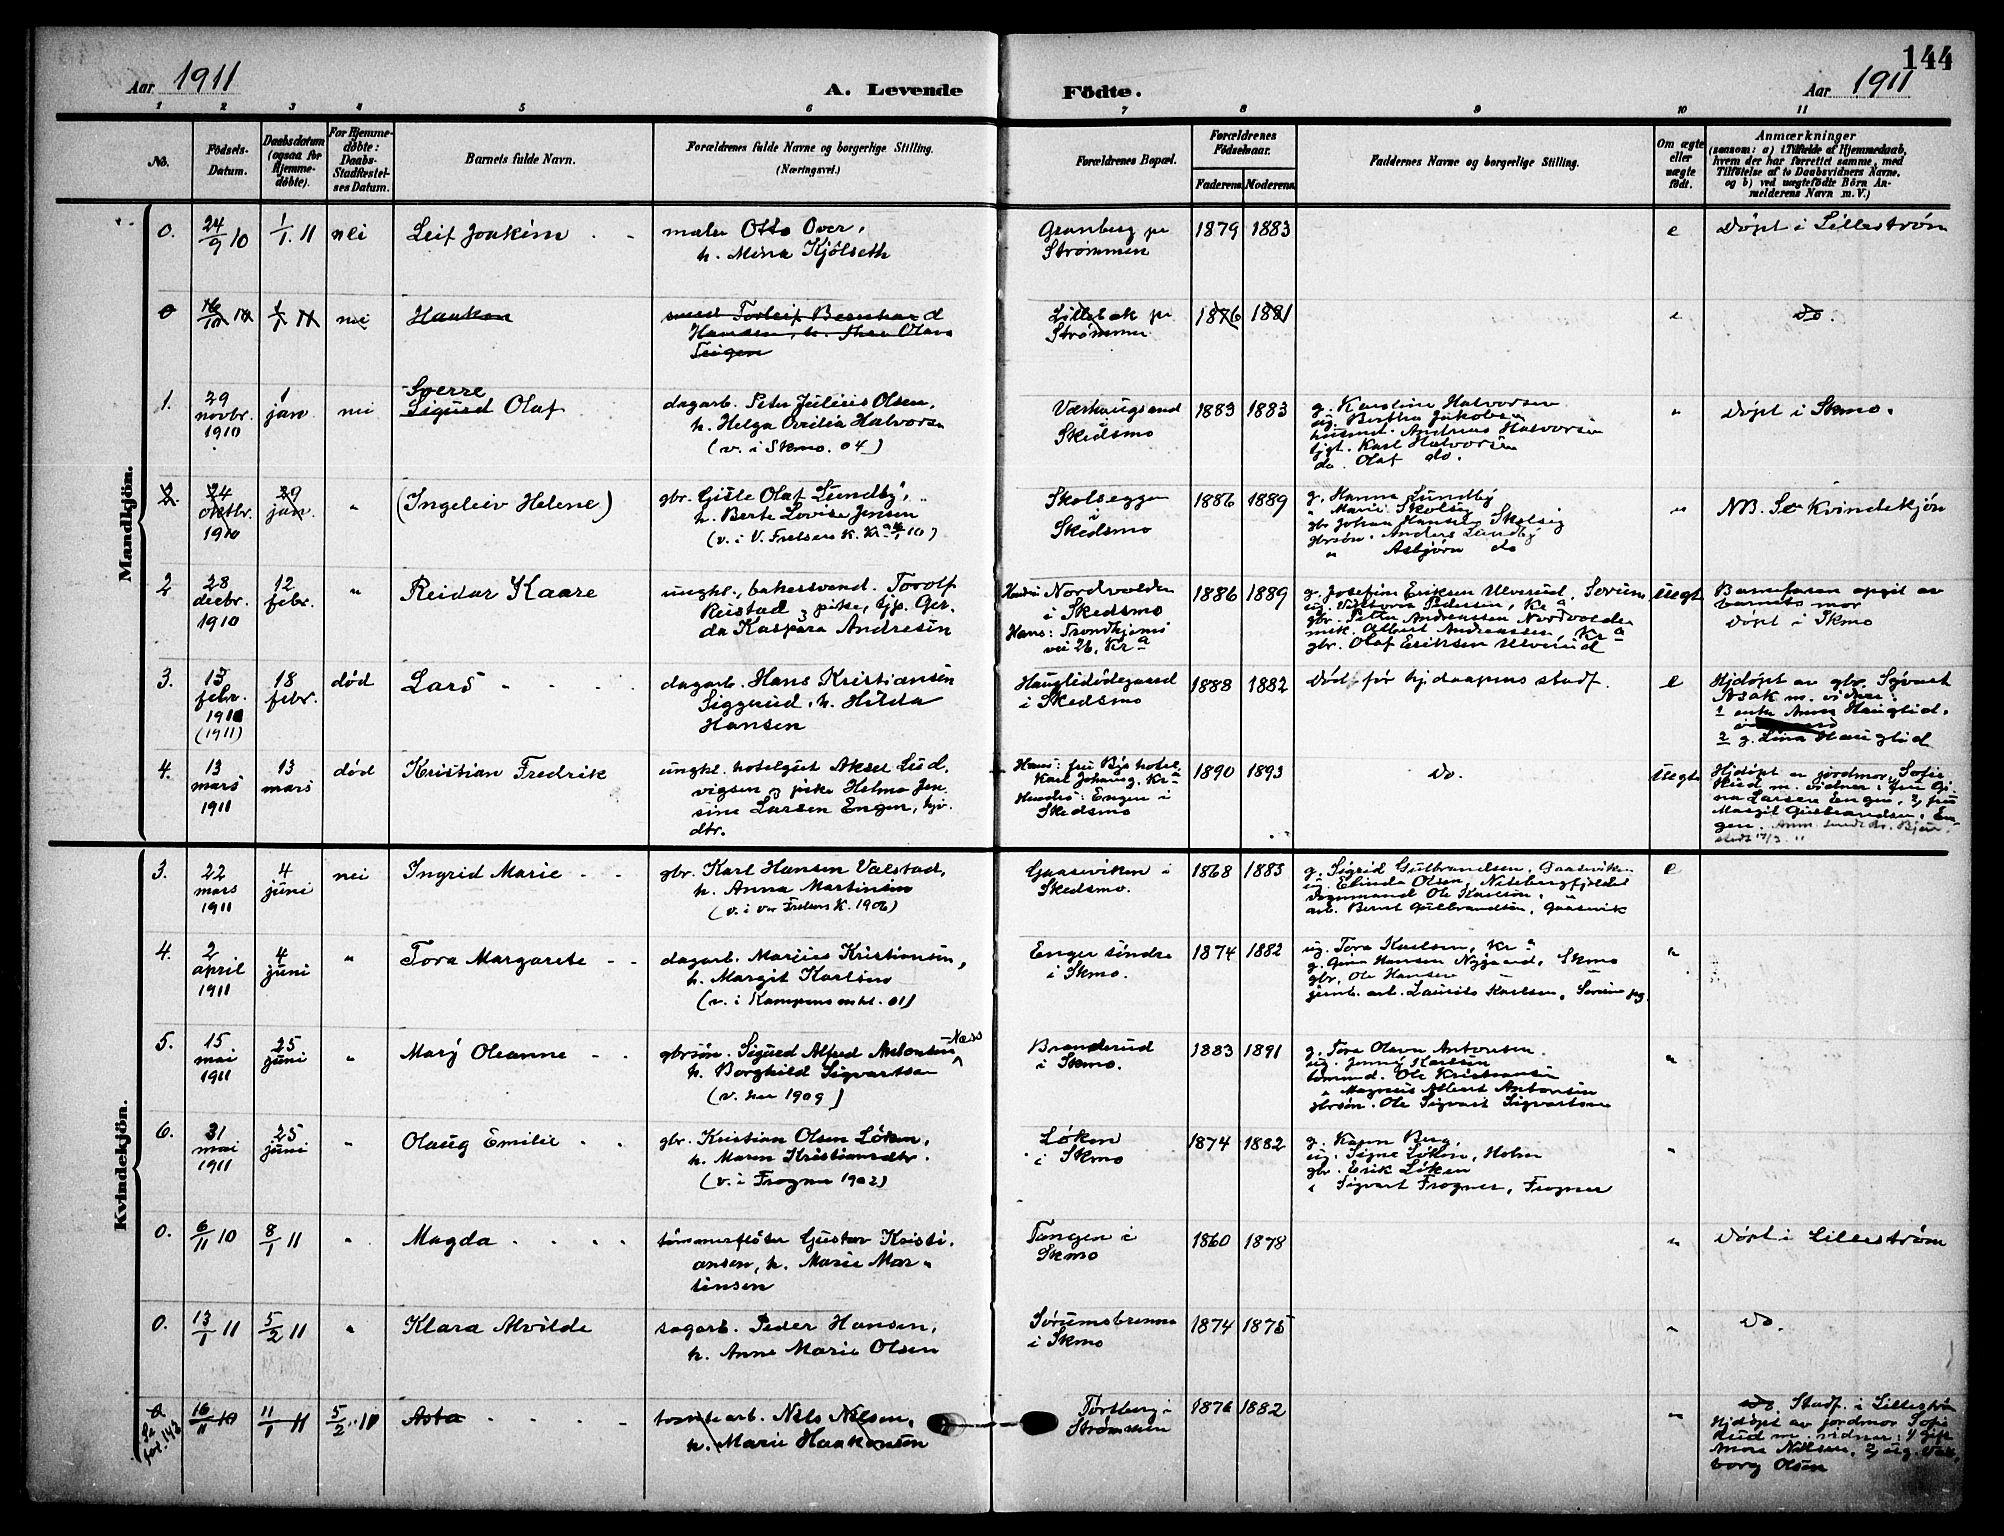 144
Aar 1911
A. Levende
Födte.
Aar 1911
1 2 3 4 5 6 7 8 9 10 11
No.
Födsels-
Datum.
Daabsdatum
(ogsaa for
Hjemme-
döbte).
For Hjemme-
döbte:
Daabs-
Stadfæstel-
ses Datum.
Barnets fulde Navn.
Forældrenes fulde Navne og borgerlige Stilling.
(Næringsvei.)
Forældrenes Bopæl.
Forældrenes
Födselsaar.
Faderens. Moderens.
Faddernes Navne og borgerlige Stilling.
Om ægte
eller
uægte
födt.
Anmærkninger
(saasom: a) i Tilfælde af Hjemmedaab,
hvem der har forrettet samme, med
Tilföielse af to Daabsvidners Navne,
og b) ved uægtefödte Börn An-
melderens Navn m. V.)
Mandkjön.
0. 24/9 10 1/1. 11 nei Leif Joakim
maler Otto Over,
h. Mina Kjölseth
Granberg pr
Strømmen
1879 1883 e Døpt i Lilleström
0 16/10 10 1/1 11 nei Haakon
Torleif Bernhard
Hansen, h. Thea Olava
Teigen
Lillebæk pr
Strömmen
1876 1881 " do.
1. 29 novbr. 1910 1 jan nei Sverre
Sigurd Olaf
dagarb. Peter Julius Olsen,
h. Helga Ovilia Halvorsen
(v. i Skmo. 04)
Skedsmo
1883 1883
g. Karoline Halvorsen
ug. Bertha Jakobsen
husmd. Andreas Halvorsen
Karl Halvorsen
do. Olaf do.
" Døpt i Skmo.
2. 24 oktbr. 1910 29 jan. " (Ingeleiv Helene)
gbr. Gisle Olaf Lundby,
h. Berte Lovise Jensen
(v. i V. Frelsers K. Kra 10)
Skolsegga
i
Skedsmo
1886 1889
g. Hanna Lundby
" Marie Skolseg
gbr. Johan Hansen Skolseg
gbrsøn. Anders Lundby
" Asbjørn do
" NB. Se Kvindekjön
2 28 decbr. 1910 12 febr. " Reidar Kaare
ungkl., bakersvend. Torolf
Reistad & pike, tjp. Ger-
da Kaspara Andresen
Hendes: Nordvolden
i Skedsmo
Hans: Trondhjems
vei 26, Kra
1886 1889
g. Josefine Eriksen Ulverud, Sørum
ug. Viktoria Pedersen, Kra
gbr. Petter Andreassen Nordvolden
msk. Albert Andreassen, Kra
gbr. Olaf Eriksen Ulverud
uegte Barnefaren opgit av
barnets mor
Døpt i Skmo
3. 13 febr. 1911 (1911) 18 febr. død Lars
dagarb. Hans Kristiansen
Siggerud, h. Hilda
Hansen
Hauglidødegaard
i Skedsmo
1888 1882
Død før hjdaapens stadf.
e Hjdøpt av gbr. Sigvart
Asak m. vidner:
1 enke Anna Hauglid.
2 g. Lina Hauglid
4. 13 mars 1911 13 mars død Kristian Fredrik
ungkl. hotelgut Aksel Lud-
vigsen & pike Helma Jen-
sine Larsen Engen, hjv.
dtr.
Hans: fru Bye hotel,
Karl Johansg. Kra
Hendes: Engen i
Skedsmo
1890 1893 Do. uegte
Hjdøpt av jordmor Sofie
Rud m. vidner: 1/ fru Gi-
na Larsen Engen, 2/ fru
Margit Gulbrandsen, En-
gen. Anm. sendt
Kvindekjön.
3. 22 mars 1911 4 juni nei Ingrid Marie
gbr. Karl Hansen Valstad,
h. Anna Martinsen
(v. i Vor Frelsers K. 1906)
Gaasviken i
Skedsmo.
1868 1883
g. Sigrid Gulbrandsen, Gaasviken
ug. Elinda Olsen, Nitebergfjeldet
Ole Karlsen
arb. Bernt Gulbrandsen, Gaasvik
e
4. 2 april 1911 4 juni " Tora Margarete
dagarb. Marius Kristiansen,
h. Margit Karlsen
(v. i Kampens mkt. 01)
Enger søndre
i Skmo.
1874 1882
ug. Tora Karlsen, Kra
g. Gina Hansen Nygaard, Skmo
gbr. Ole Hansen "
jernb. arb. Laurits Karlsen, Sørumsg.
"
5. 15 mai 1911 25 juni " Mary Oleanne
gbrsøn. Sigurd Alfred Antonsen -Næss
h. Borghild Sigvartsen
(v. her 1909)
Branderud
i Skmo.
1883 1891
g. Tora Olava Antonsen.
ug. Jenny Karlsen
tømmd. Ole Kristiansen
" Magnus Albert Antonsen
gbrsøn. Ole Sigvart Sigvartsen
"
6. 31 mai 1911 25 juni " Olaug Emilie
gbr. Kristian Olsen Løken,
h. Maren Kristiansdtr.
(v. i Frogner 1902)
Løken
i Skmo
1874 1882
g. Karen Berg,
ug. Signe Løken, Holm
gbr. Erik Løken
" Sigvart Frogner, Frogner
"
0. 6/11 10 8/1 11 " Magda
tømmerfløter Gustav Kristi-
ansen, h. Marie Mar-
tinsen
Tangen i
Skmo
1860 1878 " Døpt i Lillestrøm
0. 13/1 11 5/2 11 " Klara Alvilde
sagarb. Peder Hansen,
h. Anne Marie Olsen
Sørumsbrenna
i Skmo
1874 1875 " Do.
0 Se fol. 143 16/11 10 11/1 11 5/2 11 Asta
tomtearb. Nils Nilsen,
h. Marie Haakonsen
Tortberg i
Strømmen
1876 1882 "
do. Stadf. i Lillestrøm
Hjdøpt av jordmor Sofie
Rud m. vidner: 1/ gift
Anna Nilsen, 2/ ug. Val-
borg Olsen